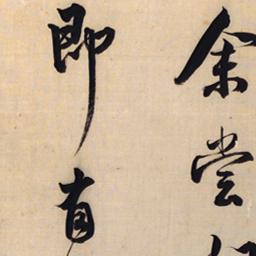 余嘗
即有